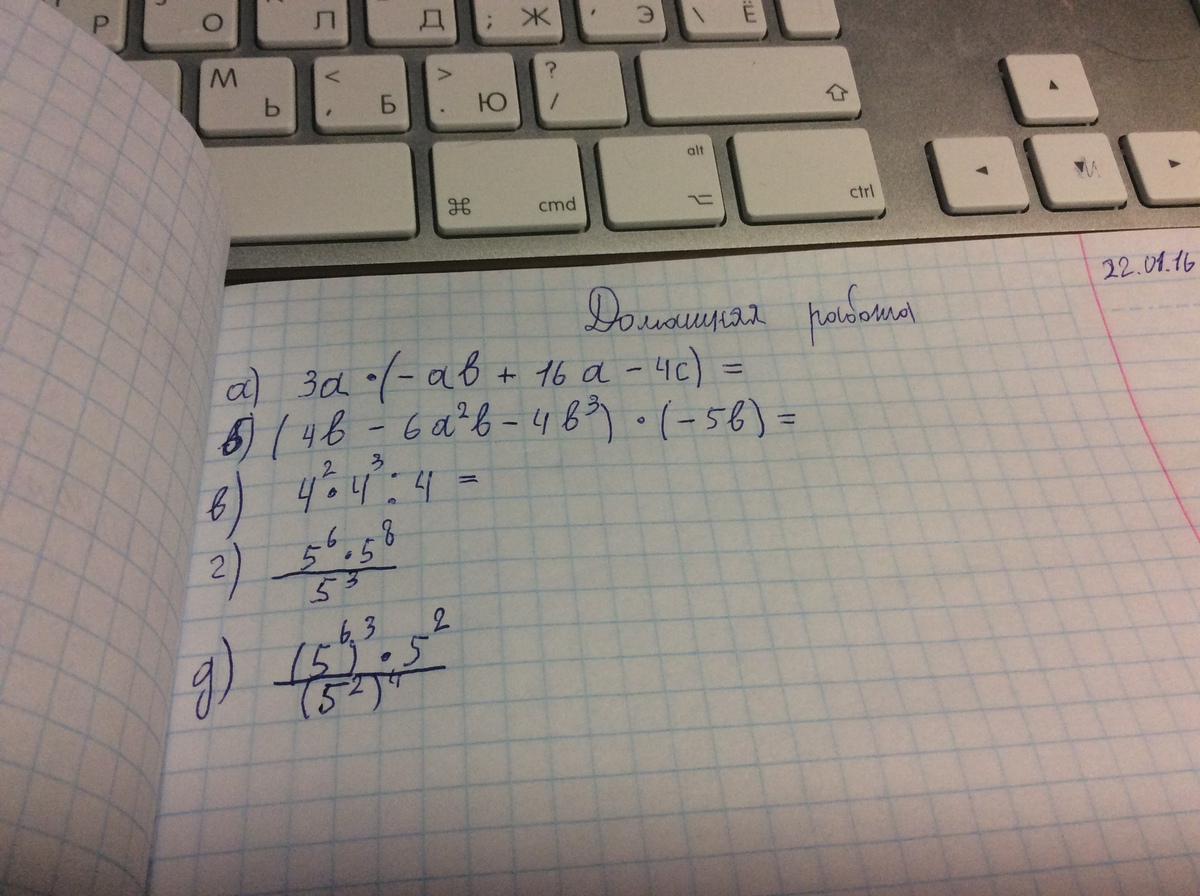 Р О Л Д ; Ж ' Э \ Ё
М Ь < , Б > . Ю ? /
⌘ cmd alt ⌥ ctrl
22.01.16
Домашняя работа
а) 3a · (- ab + 16 a - 4c) =
б) ( 4b - 6a²b - 4b³) · (- 5b) =
в) 4² · 4³ : 4 =
г) 5⁶ · 5⁸
5³
д) (5⁶)³ · 5²
(5²)⁴